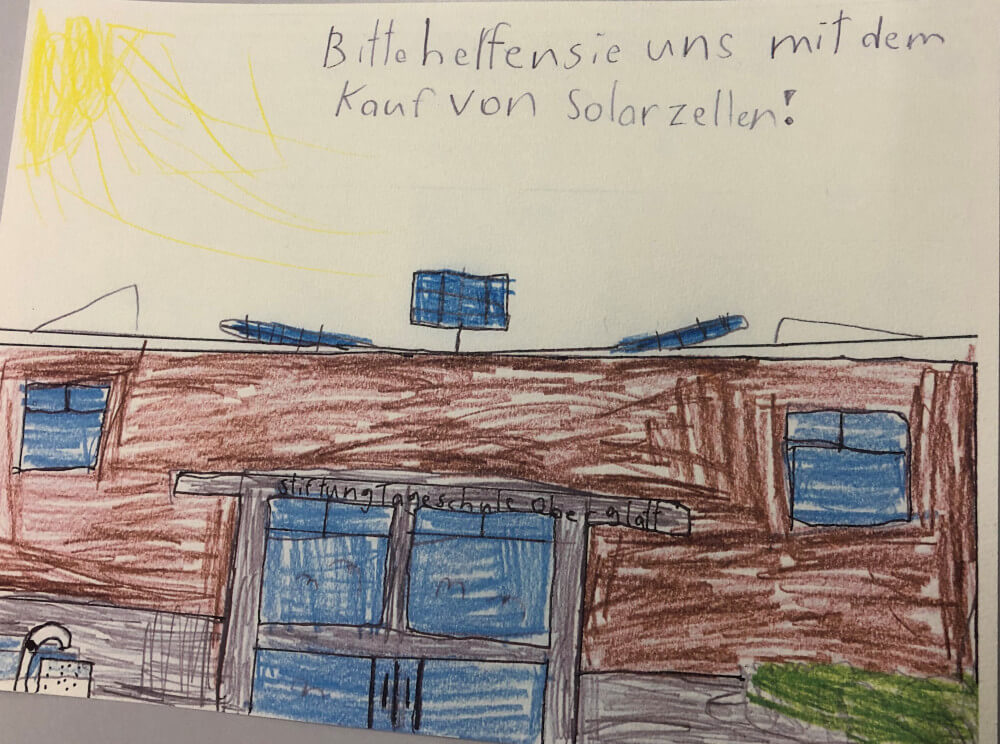 Bitte helffensie uns mit dem
Kauf von Solarzellen!
Stiftung Tageschule Oberglatt